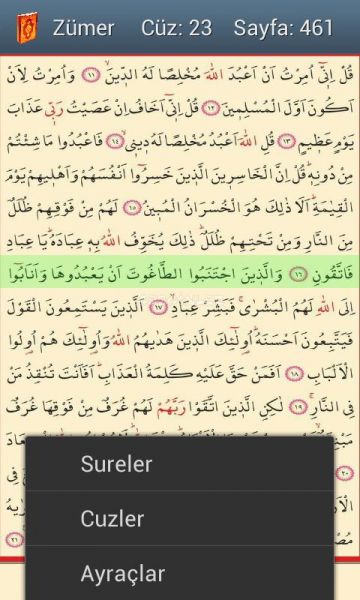 Zümer Cüz: 23 Sayfa: 461
قُلْ اِنّ۪ٓي اُمِرْتُ اَنْ اَعْبُدَ اللّٰهَ مُخْلِصًا لَهُ الدّ۪ينَۙ ﴿١١﴾ وَاُمِرْتُ لِاَنْ
اَكُونَ اَوَّلَ الْمُسْلِم۪ينَ ﴿١٢﴾ قُلْ اِنّ۪ٓي اَخَافُ اِنْ عَصَيْتُ رَبّ۪ي عَذَابَ
يَوْمٍ عَظ۪يمٍ ﴿١٣﴾ قُلِ اللّٰهَ اَعْبُدُ مُخْلِصًا لَهُ د۪ين۪يۙ ﴿١٤﴾ فَاعْبُدُوا مَا شِئْتُمْ
مِنْ دُونِه۪ۜ قُلْ اِنَّ الْخَاسِر۪ينَ الَّذ۪ينَ خَسِرُٓوا اَنْفُسَهُمْ وَاَهْل۪يهِمْ يَوْمَ
الْقِيٰمَةِۜ اَلَا ذٰلِكَ هُوَ الْخُسْرَانُ الْمُب۪ينُ ﴿١٥﴾ لَهُمْ مِنْ فَوْقِهِمْ ظُلَلٌ
مِنَ النَّارِ وَمِنْ تَحْتِهِمْ ظُلَلٌۜ ذٰلِكَ يُخَوِّفُ اللّٰهُ بِه۪ عِبَادَهُۜ يَا عِبَادِ
فَاتَّقُونِ ﴿١٦﴾ وَالَّذ۪ينَ اجْتَنَبُوا الطَّاغُوتَ اَنْ يَعْبُدُوهَا وَاَنَابُٓوا
اِلَى اللّٰهِ لَهُمُ الْبُشْرٰىۚ فَبَشِّرْ عِبَادِۙ ﴿١٧﴾ اَلَّذ۪ينَ يَسْتَمِعُونَ الْقَوْلَ
فَيَتَّبِعُونَ اَحْسَنَهُۜ اُو۬لٰٓئِكَ الَّذ۪ينَ هَدٰيهُمُ اللّٰهُ وَاُو۬لٰٓئِكَ هُمْ اُو۬لُوا
الْاَلْبَابِ ﴿١٨﴾ اَفَمَنْ حَقَّ عَلَيْهِ كَلِمَةُ الْعَذَابِۜ اَفَاَنْتَ تُنْقِذُ مَنْ
فِي النَّارِۚ ﴿١٩﴾ لٰكِنِ الَّذ۪ينَ اتَّقَوْا رَبَّهُمْ لَهُمْ غُرَفٌ مِنْ فَوْقِهَا غُرَفٌ
Sureler
Cuzler
Ayraçlar